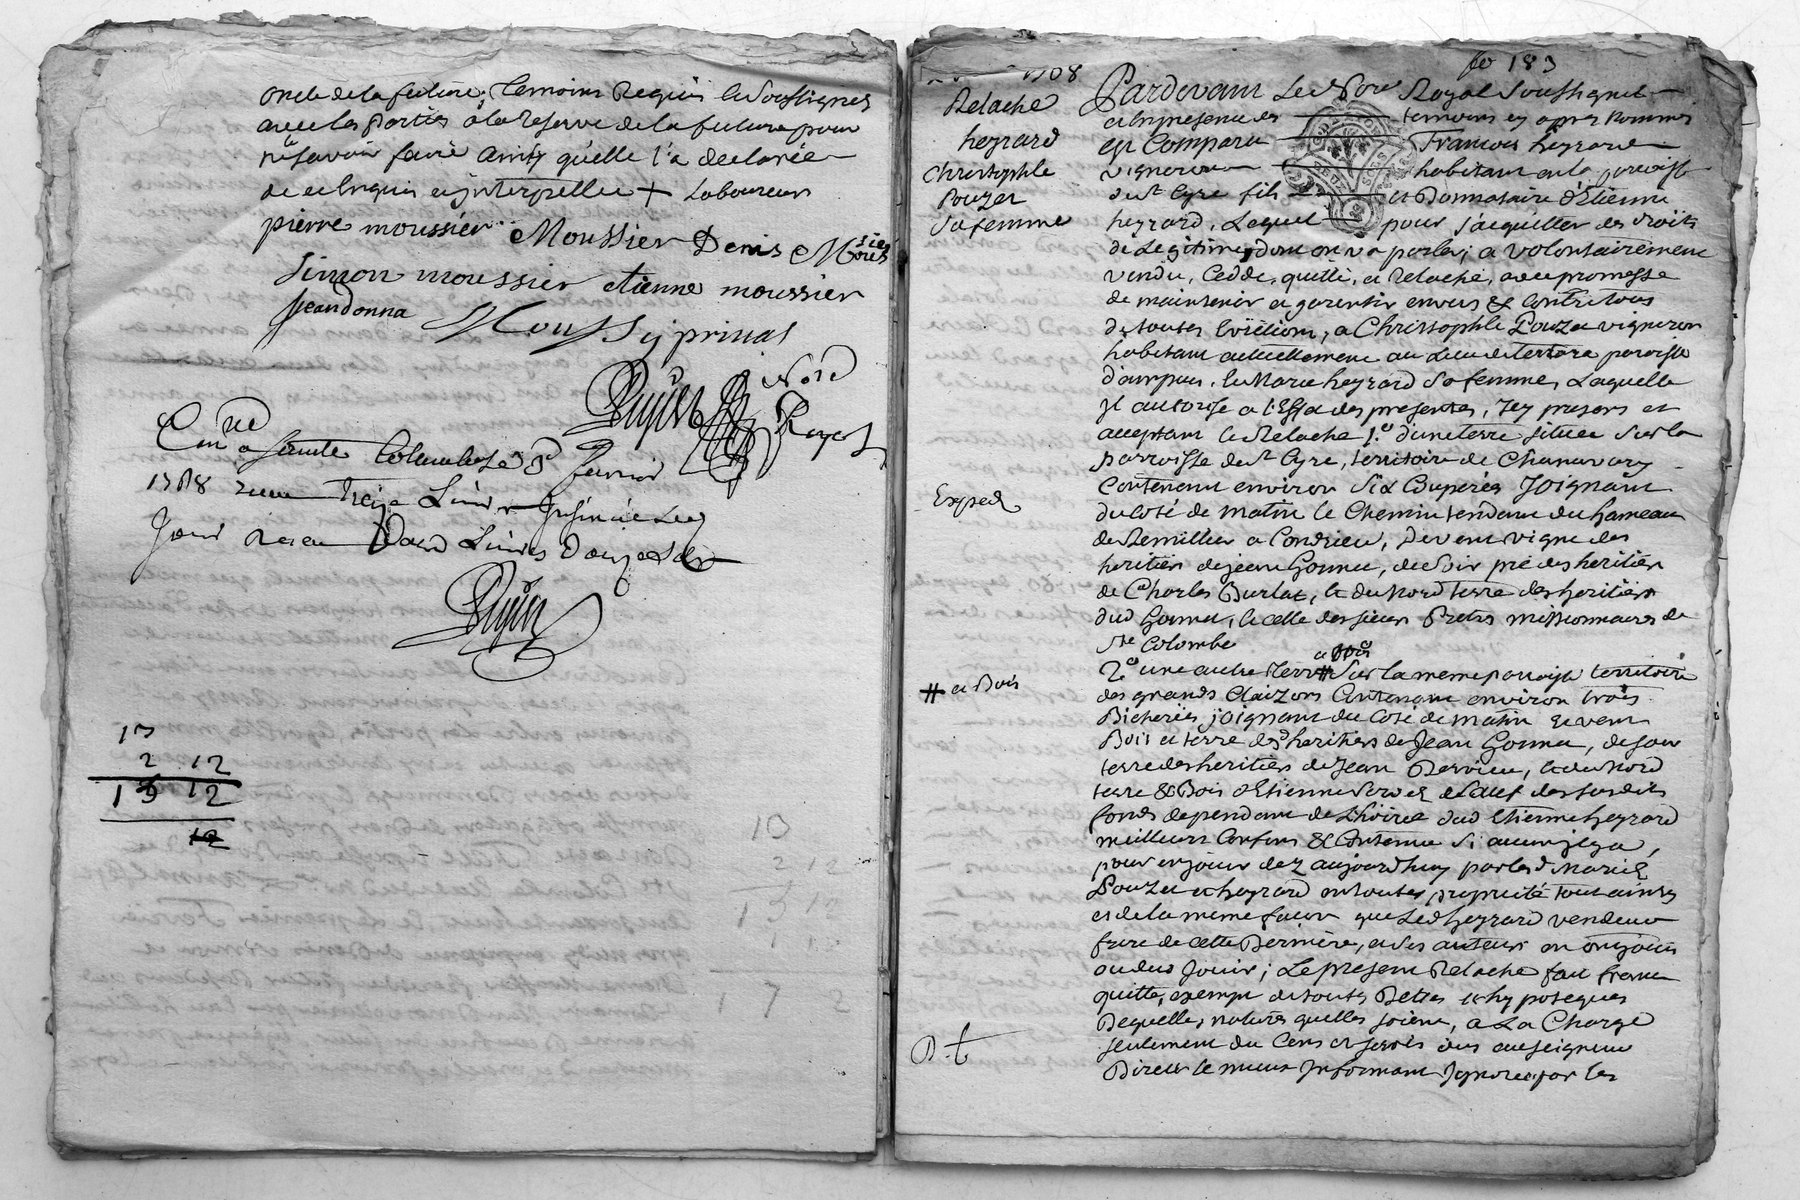 oncle de la future, temoins requis et soussignes
avec les parties a la reserve de la future pour
ne savoir faire ainsy quelle l'a declarée
de ce enquis et interpellée + Laboureur
pierre moussier Moussier Denis Mousier
Simon moussier etienne moussier
jean donna
Moussy prinat
Nore
Royal
Con^lé a sainte Colombe le 8 fevrier
1768 receu treize Livres Insinué led
Jour receu
13
2 12
15 12
12
10
2 12
17 2
fo 183
1768
Relache
heyrard
Christophle
Pouzet
sa femme
Exped
# et Bois
Pardevant Le No^re Royal soussigné
et en presence des temoins cy apres nommes
est Comparu Francois heyrard
vigneron habitant en la paroisse
de s^t Cyre fils et Donnataire d'Etienne
heyrard, Lequel pour s'acquitter des droits
de Legitime, dont on va parler, a volontairement
vendu, Cedde, quitté, et relaché, avec promesse
de maintenir et garentir envers & Contre tous
de toutes Evictions, a Christophle Pouzet vigneron
habitant actuellement au Lieu de tartara paroisse
d'ampuis, et Marie heyrard sa femme, Laquelle
Jl autorise a l'Effet des presentes, Icy presens et
acceptant le Relache 1.° d'une terre située sur la
parroisse de s^t Cyre, territoire de Chanavary
Contenant environ six Couperées Joignant
du coté de matin le Chemin tendant du hameau
de Semillier a Condrieu, de vent vigne des
heritiers de jean Gonnet, de soir pré des heritiers
de Charles Burlat, et du Nord terre des heritiers
dud Gonnet, et celle des sieurs Pretres missionnaires de
s^te Colombe
2.° une autre terre # sur la meme paroisse territoire
des grands Claizons Contenant environ trois
Bicherées, joignant du Coté de matin et vent
Bois et terre des heritiers de Jean Gonnet, de soir
terre des heritiers de Jean Dervieu, et du Nord
terre & Bois d'Etienne Servet, et sauf des susdits
fonds dependant de L'hoirie dud Etienne heyrard
meilleurs Confins & Contenue si aucun jl y a,
pour en jouir dez aujourdhuy par lesd mariés
Pouzet et heyrard en toutes proprieté tout ainsy
et de la meme façon que Led heyrard vendeur
frere de cette Derniere, et ses auteurs en ont jouis
ou deus jouir; Le present Relache fait franc
quitte, exempt de toutes Dettes et hypoteques
Dequelles natures quelles soient, a La Charge
seulement du Cens et servis dus au seigneur
Direct le mieux Informant Ignorée par les